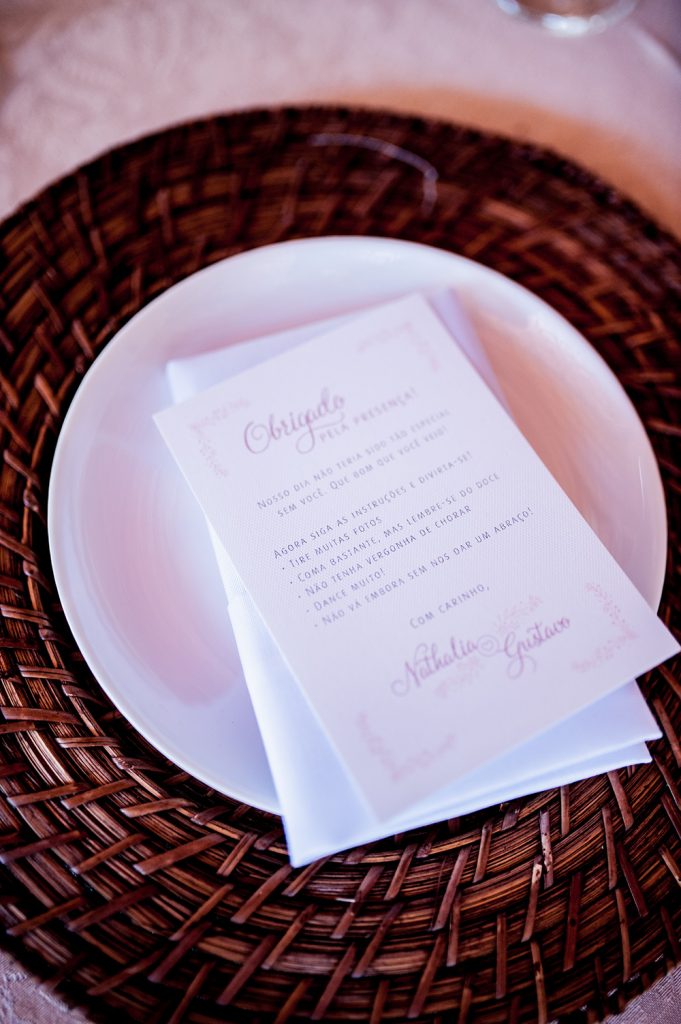 Obrigado
PELA PRESENÇA!
NOSSO DIA NÃO TERIA SIDO TÃO ESPECIAL
SEM VOCÊ. QUE BOM QUE VOCÊ VEIO!
AGORA SIGA AS INSTRUÇÕES E DIVIRTA-SE!
• TIRE MUITAS FOTOS
• COMA BASTANTE, MAS LEMBRE-SE DO DOCE
• NÃO TENHA VERGONHA DE CHORAR
• DANCE MUITO!
• NÃO VÁ EMBORA SEM NOS DAR UM ABRAÇO!
COM CARINHO,
Nathalia Gustavo